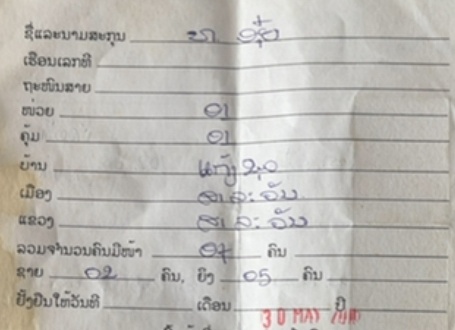 ຊື່ແລະນາມສະກຸນ
ເຮືອນເລກທີ
ຖະໜົນສາຍ
ໜ່ວຍ 01
ຄຸ້ມ 01
ບ້ານ ແກ້ງ
ເມືອງ ສາລະວັນ
ແຂວງ ສາລະວັນ
ລວມຈຳນວນຄົນມີໜ້າ 07 ຄົນ
ຊາຍ 02 ຄົນ, ຍິງ 05 ຄົນ
ຢັ້ງຢືນໃຫ້ວັນທີ ເດືອນ 30 MAY ປີ